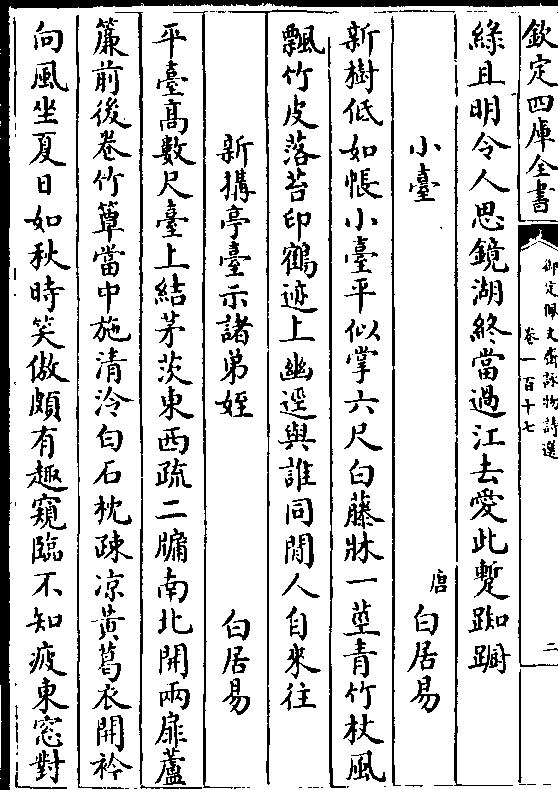 欽定四庫全書
御定佩文齋詠物詩選
卷一百十七
二
綠且明令人思鏡湖終當過江去愛此蹔踟蹰
小臺 唐 白居易
新樹低如帳小臺平似掌六尺白藤牀一莖青竹杖風
飄竹皮落苔印鶴迹上幽逕與誰同閒人自來往
新搆亭臺示諸弟姪 白居易
平臺高數尺臺上結茅茨東西疏二牖南北開兩扉蘆
簾前後卷竹簟當中施清泠白石枕疎凉黃葛衣開衿
向風坐夏日如秋時笑傲頗有趣窺臨不知疲東窓對